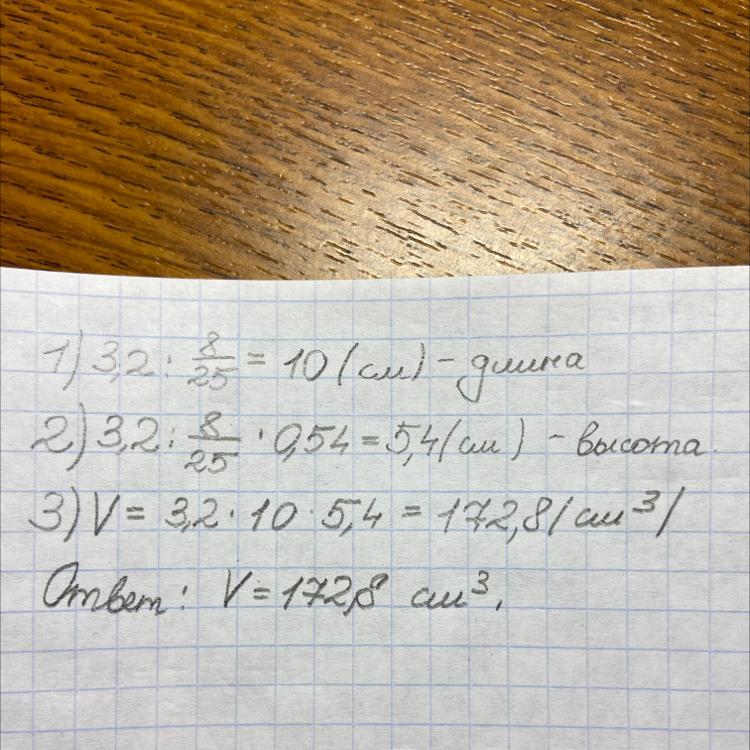 1) 3,2 : 8/25 = 10 (см) - длина
2) 3,2 : 8/25 · 0,54 = 5,4 (см) - высота.
3) V = 3,2 · 10 · 5,4 = 172,8 (см³)
Ответ: V = 172,8 см³.